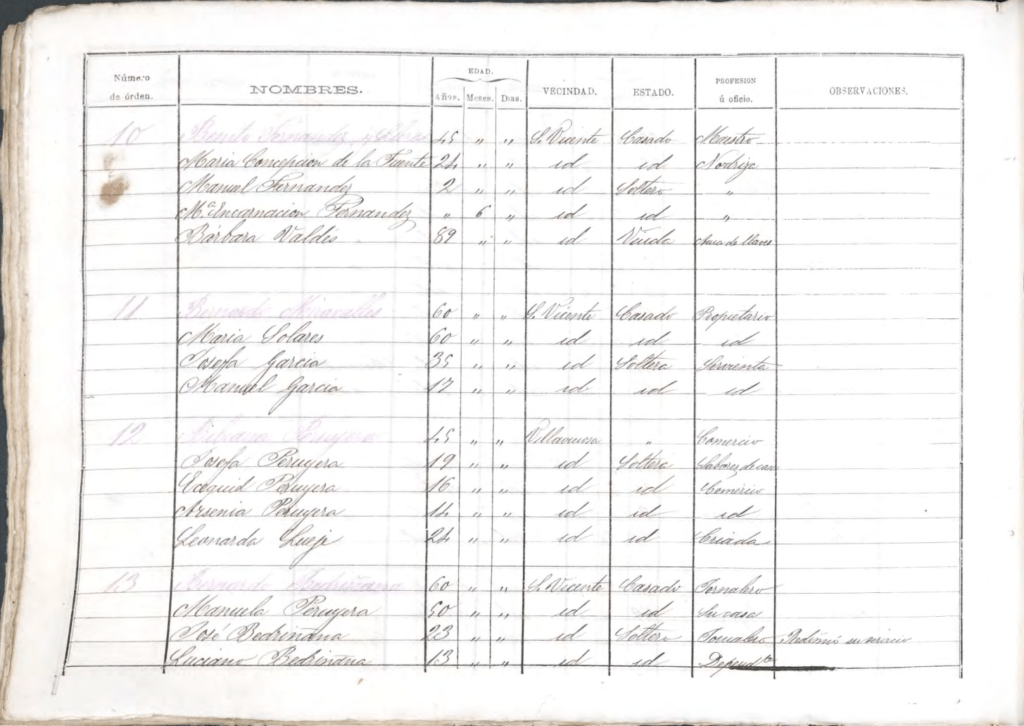 Número de órden. NOMBRES. EDAD. Años. Meses. Dias. VECINDAD. ESTADO. PROFESION ú oficio. OBSERVACIONES.
10 Benito Fernandez 45 " " S. Vicente Casado Maestro
Maria Concepcion de la Fuente 24 " " id id Nodriza
Manuel Fernandez 2 " " id Soltero "
Mª Encarnacion Fernandez " 6 " id id "
Bárbara Valdés 89 " " id Viuda Ama de llaves
11 Bernardo Miravalles 60 " " S. Vicente Casado Propietario
Maria Solares 60 " " id id id
Josefa Garcia 35 " " id Soltera Sirvienta
Manuel Garcia 17 " " id id id
12 Peruyera 45 " " Villaviciosa " Comercio
Josefa Peruyera 19 " " id Soltera Labores de
Ecequiel Peruyera 16 " " id id Comercio
Arsenia Peruyera 14 " " id id id
Leonarda 24 " " id id Criada
13 Bernardo Bedriñana 60 " " S. Vicente Casado Jornalero
Manuela Peruyera 50 " " id id Su casa
José Bedriñana 23 " " id Soltero Jornalero
Luciano Bedriñana 13 " " id id Depend.te